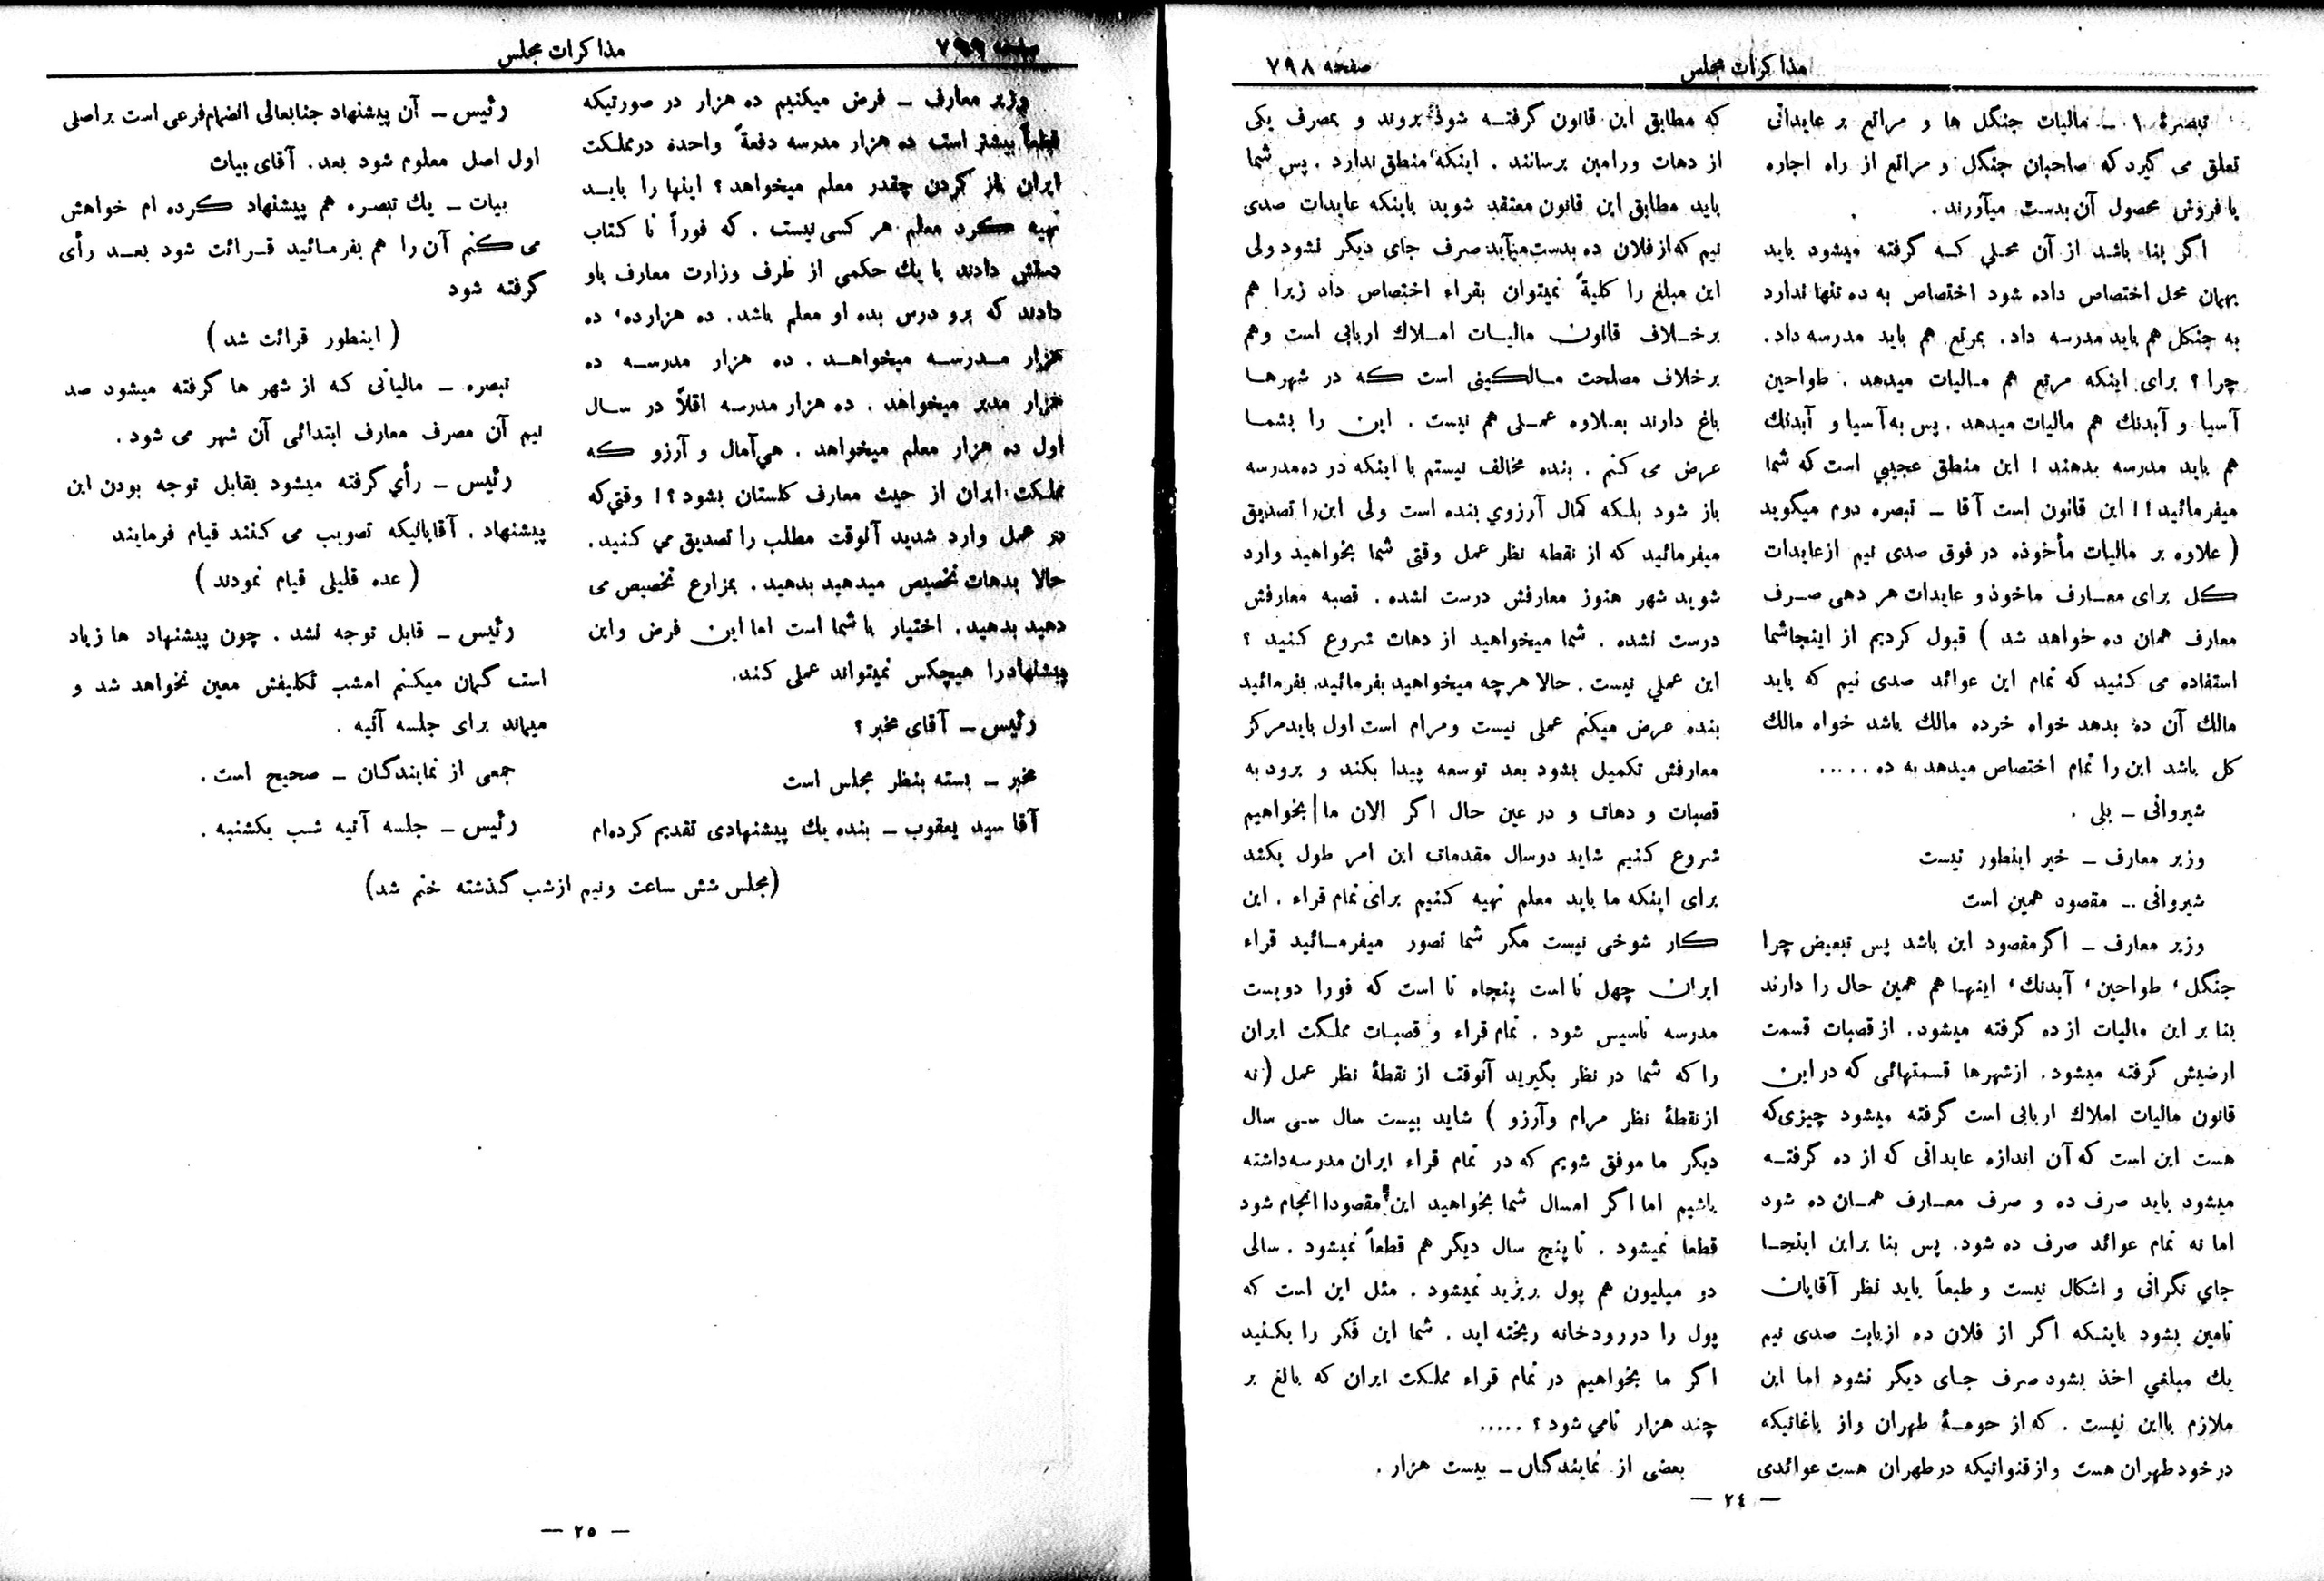 مذاکرات مجلس
صفحه ۷۹۸
تبصرهٔ ۱ ـ مالیات جنگل ها و مراتع بر عایداتی
تعلق می گیرد که صاحبان جنگل و مراتع از راه اجاره
یا فروش محصول آن بدست میآورند .
اگر بنا باشد از آن محلي که گرفته میشود باید
بهمان محل اختصاص داده شود اختصاص به ده تنها ندارد
به جنگل هم باید مدرسه داد . بمرتع هم باید مدرسه داد .
چرا ؟ برای اینکه مرتع هم مالیات میدهد . طواحین
آسیا و آبدنك هم مالیات میدهد . پس به آسیا و آبدنك
هم باید مدرسه بدهند ! این منطق عجیبي است که شما
میفرمائید !! این قانون است آقا ـ تبصره دوم میگوید
( علاوه بر مالیات مأخوذه در فوق صدی نیم از عایدات
کل برای معارف ماخوذ و عایدات هر دهی صرف
معارف همان ده خواهد شد ) قبول کردیم از اینجا شما
استفاده می کنید که تمام این عوائد صدی نیم که باید
مالك آن ده بدهد خواه خرده مالك باشد خواه مالك
کل باشد این را تمام اختصاص میدهد به ده .....
شیروانی ـ بلی .
وزیر معارف ـ خیر اینطور نیست
شیروانی ـ مقصود همین است
وزیر معارف ـ اگر مقصود این باشد پس تبعیض چرا
جنگل ، طواحین ، آبدنك ، اینها هم همین حال را دارند
بنا بر این مالیات از ده گرفته میشود . از قصبات قسمت
ارضیش گرفته میشود . از شهرها قسمتهائی که در این
قانون مالیات املاك اربابی است گرفته میشود چیزی که
هست این است که آن اندازه عایداتی که از ده گرفته
میشود باید صرف ده و صرف معارف همان ده شود
اما نه تمام عوائد صرف ده شود . پس بنا براین اینجا
جاي نگرانی و اشکال نیست و طبعاً باید نظر آقایان
تامین بشود باینکه اگر از فلان ده از بابت صدی نیم
یك مبلغي اخذ بشود صرف جای دیگر نشود اما این
ملازم با این نیست . که از حومهٔ طهران و از باغاتیکه
در خود طهران هست و از قنواتیکه در طهران هست عوائدی
که مطابق این قانون گرفته شود بروند و بمصرف یکی
از دهات ورامین برسانند . اینکه منطق ندارد . پس شما
باید مطابق این قانون معتقد شوید باینکه عایدات صدی
نیم که از فلان ده بدست میآید صرف جای دیگر نشود ولی
این مبلغ را کلیةً نمیتوان بقراء اختصاص داد زیرا هم
برخلاف قانون مالیات املاك اربابی است وهم
برخلاف مصلحت مالکینی است که در شهرها
باغ دارند بعلاوه عملی هم نیست . این را بشما
عرض می کنم . بنده مخالف نیستم با اینکه در ده مدرسه
باز شود بلکه کمال آرزوي بنده است ولی این را تصدیق
میفرمائید که از نقطه نظر عمل وقتی شما بخواهید وارد
شوید شهر هنوز معارفش درست نشده . قصبه معارفش
درست نشده . شما میخواهید از دهات شروع کنید ؟
این عملي نیست . حالا هر چه میخواهید بفرمائید بفرمائید
بنده عرض میکنم عملی نیست ومرام است اول باید مرکز
معارفش تکمیل بشود بعد توسعه پیدا بکند و برود به
قصبات و دهات و در عین حال اگر الان ما بخواهیم
شروع کنیم شاید دو سال مقدمات این امر طول بکشد
برای اینکه ما باید معلم تهیه کنیم برای تمام قراء . این
کار شوخی نیست مگر شما تصور میفرمائید قراء
ایران چهل تا است پنجاه تا است که فورا دویست
مدرسه تاسیس شود . تمام قراء و قصبات مملکت ایران
را که شما در نظر بگیرید آنوقت از نقطهٔ نظر عمل ( نه
از نقطهٔ نظر مرام وآرزو ) شاید بیست سال سی سال
دیگر ما موفق شویم که در تمام قراء ایران مدرسه داشته
باشیم اما اگر امسال شما بخواهید این مقصود انجام شود
قطعا نمیشود . تا پنج سال دیگر هم قطعاً نمیشود . سالی
دو میلیون هم پول بریزید نمیشود . مثل این است که
پول را در رودخانه ریخته اید . شما این فکر را بکنید
اگر ما بخواهیم در تمام قراء مملکت ایران که بالغ بر
چند هزار تامي شود ؟ .....
بعضی از نمایندگان ـ بیست هزار .
— ۲٤ —
صفحه ۷۹۹
مذاکرات مجلس
وزیر معارف ـ فرض میکنیم ده هزار در صورتیکه
قطعاً بیشتر است ده هزار مدرسه دفعةً واحدة در مملکت
ایران باز کردن چقدر معلم میخواهد ؟ اینها را باید
تهیه کرد معلم هر کسی نیست . که فوراً تا کتاب
دستش دادند یا یك حکمی از طرف وزارت معارف باو
دادند که برو درس بده او معلم باشد . ده هزار ده ، ده
هزار مدرسه میخواهد . ده هزار مدرسه ده
هزار مدیر میخواهد . ده هزار مدرسه اقلاً در سال
اول ده هزار معلم میخواهد . هي آمال و آرزو که
مملکت ایران از حیث معارف گلستان بشود ؟! وقتي که
در عمل وارد شدید آنوقت مطلب را تصدیق مي کنید .
حالا بدهات تخصیص میدهید بدهید . بمزارع تخصیص می
دهید بدهید . اختیار با شما است اما این فرض واین
پیشنهاد را هیچکس نمیتواند عملی کند .
رئیس ـ آقای مخبر ؟
مخبر ـ بسته بنظر مجلس است
آقا سید یعقوب ـ بنده یك پیشنهادی تقدیم کرده ام
رئیس ـ آن پیشنهاد جنابعالی انضمام فرعی است بر اصلی
اول اصل معلوم شود بعد . آقای بیات
بیات ـ یك تبصره هم پیشنهاد کرده ام خواهش
می کنم آن را هم بفرمائید قرائت شود بعد رأی
گرفته شود
( اینطور قرائت شد )
تبصره ـ مالیاتی که از شهر ها گرفته میشود صد
نیم آن مصرف معارف ابتدائی آن شهر می شود .
رئیس ـ رأي گرفته میشود بقابل توجه بودن این
پیشنهاد . آقایانیکه تصویب می کنند قیام فرمایند
( عده قلیلی قیام نمودند )
رئیس ـ قابل توجه نشد . چون پیشنهاد ها زیاد
است گمان میکنم امشب تکلیفش معین نخواهد شد و
میماند برای جلسه آتیه .
جمعی از نمایندگان ـ صحیح است .
رئیس ـ جلسه آتیه شب یکشنبه .
(مجلس شش ساعت ونیم از شب گذشته ختم شد)
— ۲۵ —